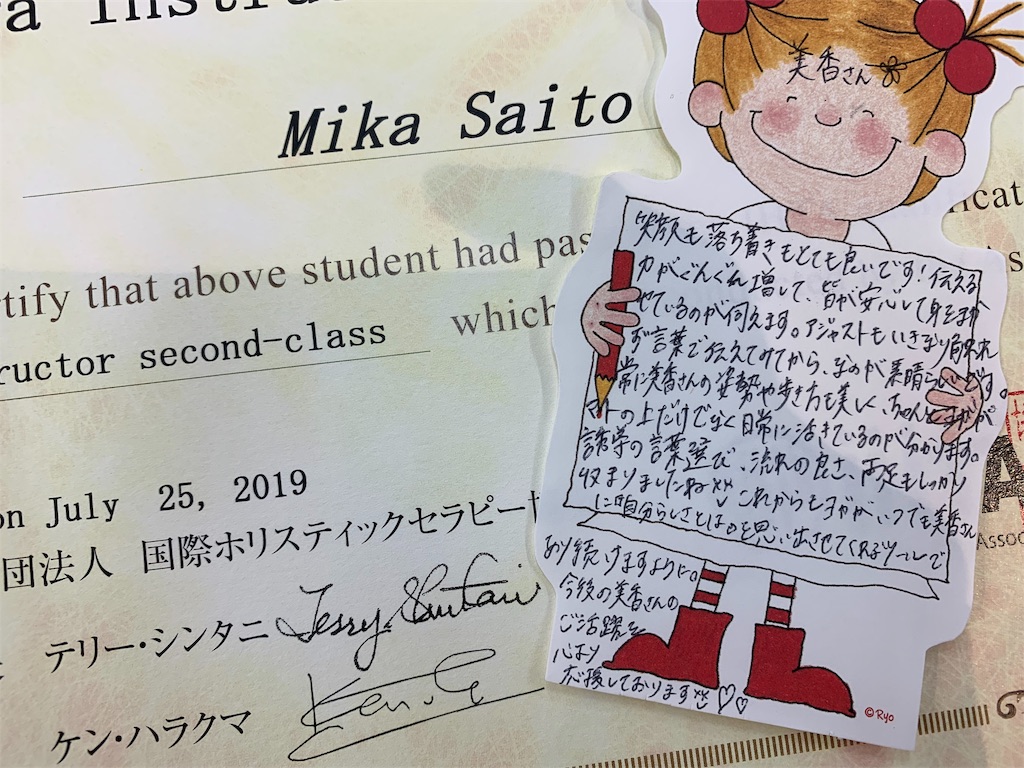 Mika Saito
rtify that above student had pas
ructor second-class which
on July 25, 2019
団法人 国際ホリスティックセラピー
テリー・シンタニ
ケン・ハラクマ
美香さん
笑顔も落ち着きもとても良いです！伝える
力がぐんぐん増して、皆が安心して身をまか
せているのが伺えます。アジャストもいきなり触れ
ず言葉で伝えてみてから、なのが素晴らしいです。
常に美香さんの姿勢や歩き方も美しく、ちゃんとヨガが
マットの上だけでなく日常に活きているのが分かります。
誘導の言葉選び、流れの良さ、両足もしっかり
収まりましたね これからもヨガがいつでも美香さん
に"自分らしさとは"を思い出させてくれるツールで
あり続けますように。
今後の美香さんの
ご活躍を
心より
応援しております
©Ryo
Assoc